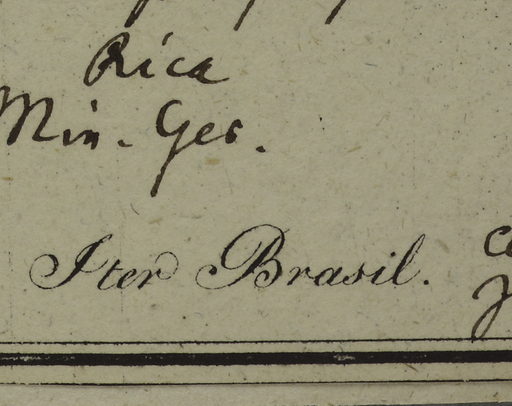 Rica
Min. Ger.
Iter Brasil.